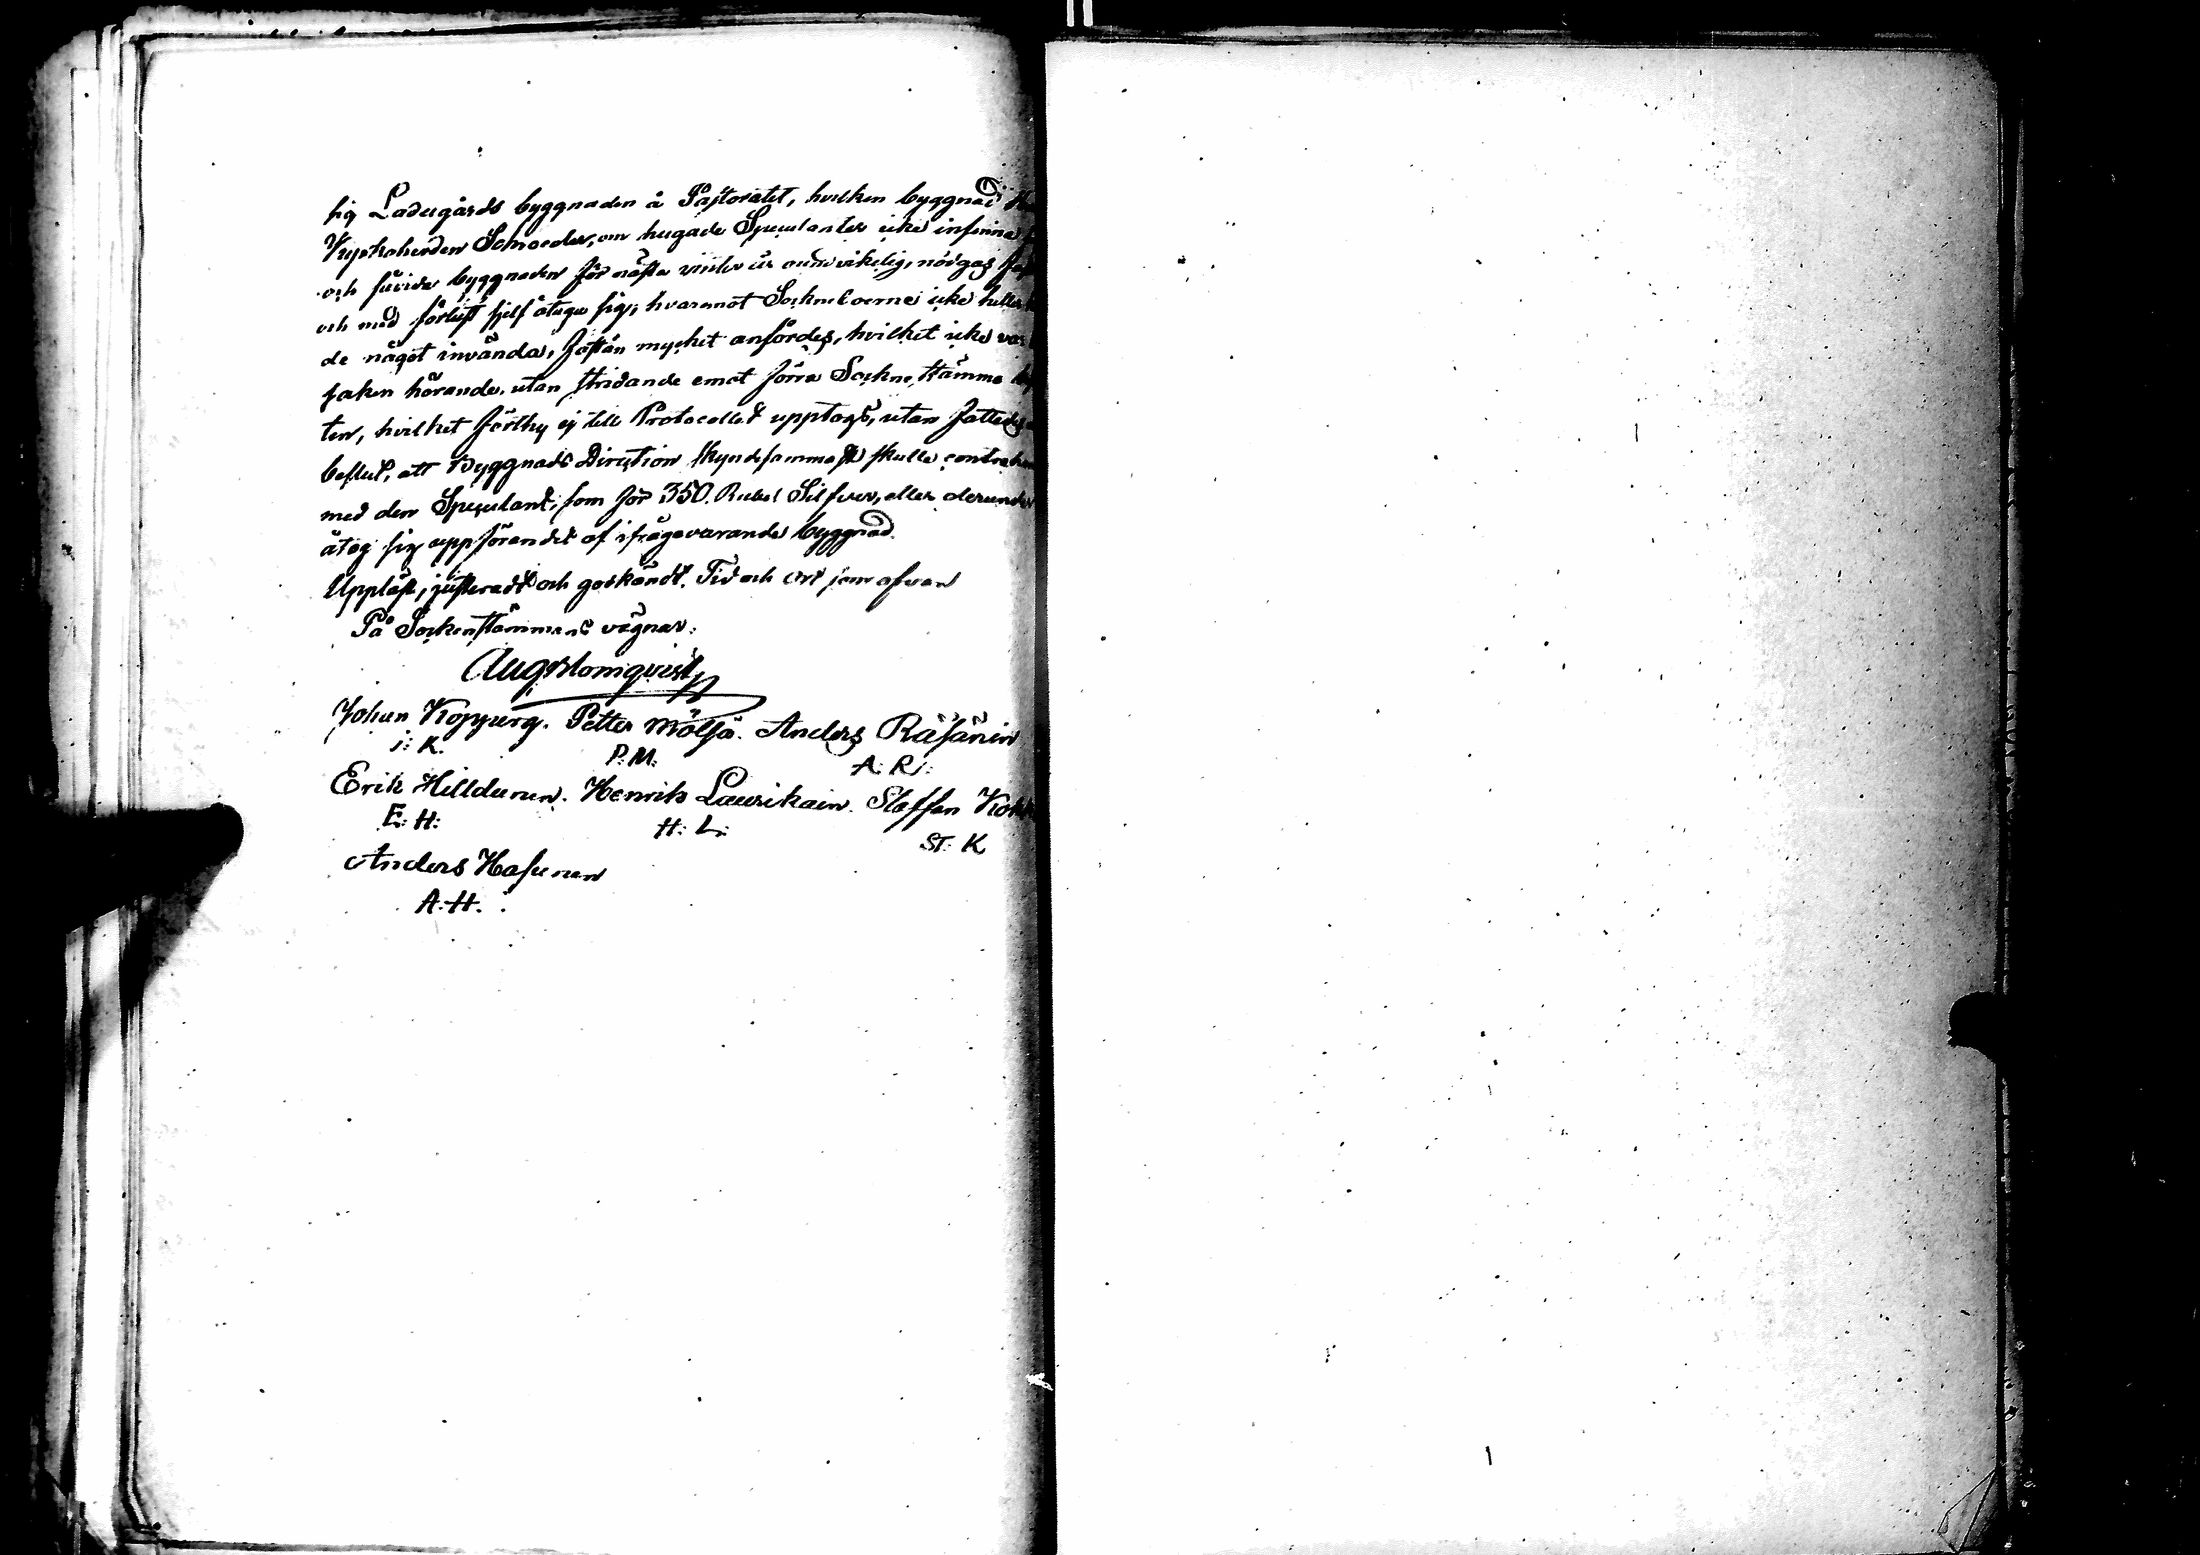 sig Ladugårds byggnaden å Pastoratet, hvilken byggnad
Kyrkoherden Schroeder, om hugade Speculanter icke infinna
och såvida byggnaden för nästa vinter är oundvikelig, nödgas
och med förlust sjelf åtaga sig, hvaremot Sockneboerne icke heller
de något invända, fastän mycket anfördes, hvilket icke var
saken hörande, utan stridande emot förra Sockne Stämmo
ten, hvilket förthy ej till Protocollet upptogs, utan fattades
beslut, att Byggnads Direction skyndsammast skulle contrahera
med den Speculant, som för 350. Rubel Silfver, eller derunder
åtog sig uppförandet af ifrågavarande byggnad.
Uppläst, justeradt och godkändt. Tid och ort som ofvan
På Sockenstämmans vägnar:
Aug Blomqvist
Johan Kopperg. Petter Mölsä. Anders Räsänin
J: K. P: M: A: R:
Erik Hilldunen. Henrik Laurikain. Staffan
E: H: H: L: ST: K
Anders Hasunen
A: H.